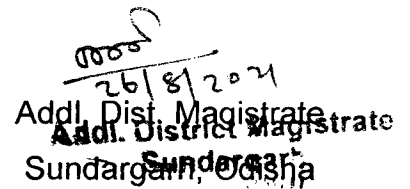 26/8/2021
Addl. Dist. Magistrate
Addl. District Magistrate
Sundargarh, Odisha
Sundargarh